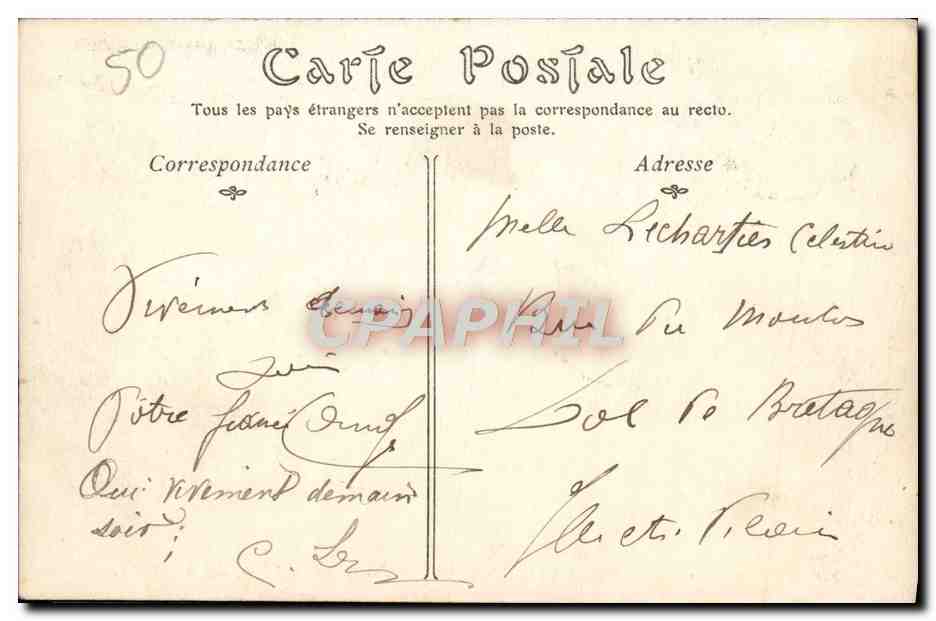 50
Carte Postale
Tous les pays étrangers n'acceptent pas la correspondance au recto.
Se renseigner à la poste.
Correspondance
Vivement demain
soir
Votre fiancé
Oui vivement demain
soir;
C. Le
Adresse
Melle Lechartier Celestine
Rue du Moulin
Dol de Bretagne
Ille et Vilaine
CPAPHIL